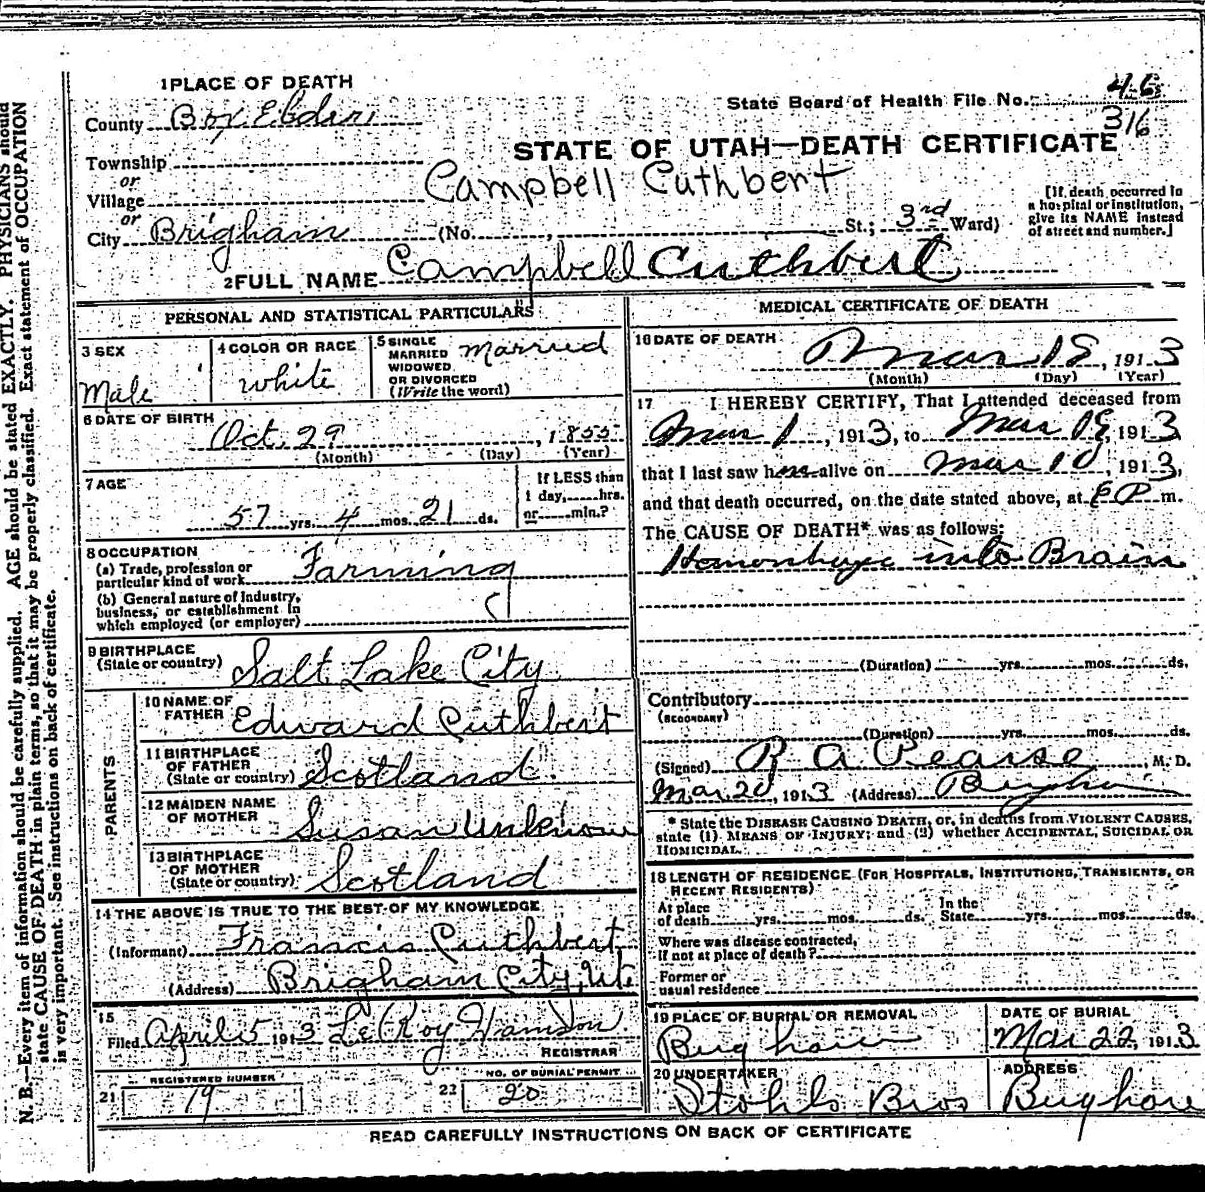 1 PLACE OF DEATH
County Box Elder
State Board of Health File No. 46
316
STATE OF UTAH—DEATH CERTIFICATE
Township
or
Village
or
Campbell Cuthbert
City Brigham (No. , St.; 3rd Ward)
[If death occurred in
a hospital or institution,
give its NAME instead
of street and number.]
2 FULL NAME Campbell Cuthbert
PERSONAL AND STATISTICAL PARTICULARS
3 SEX
Male
4 COLOR OR RACE
White
5 SINGLE
MARRIED
WIDOWED
OR DIVORCED
(Write the word)
Married
6 DATE OF BIRTH
Oct 29, 1855
(Month) (Day) (Year)
7 AGE
57 yrs. 4 mos. 21 ds.
If LESS than
1 day, hrs.
or min.?
8 OCCUPATION
(a) Trade, profession or
particular kind of work Farming
(b) General nature of Industry,
business, or establishment in
which employed (or employer)
9 BIRTHPLACE
(State or country) Salt Lake City
PARENTS
10 NAME OF
FATHER Edward Cuthbert
11 BIRTHPLACE
OF FATHER
(State or country) Scotland
12 MAIDEN NAME
OF MOTHER Susan Unknown
13 BIRTHPLACE
OF MOTHER
(State or country) Scotland
14 THE ABOVE IS TRUE TO THE BEST OF MY KNOWLEDGE
(Informant) Francis Cuthbert
(Address) Brigham City, Ut
15
Filed April 5 1913 LeRoy
REGISTRAR
REGISTERED NUMBER
21 19
NO. OF BURIAL PERMIT
22 20
MEDICAL CERTIFICATE OF DEATH
16 DATE OF DEATH
Mar 18, 1913
(Month) (Day) (Year)
17 I HEREBY CERTIFY, That I attended deceased from
Mar 1, 1913, to Mar 18, 1913
that I last saw him alive on Mar 18, 1913,
and that death occurred, on the date stated above, at P m.
The CAUSE OF DEATH* was as follows:
Hemorrhage into Brain
(Duration) yrs. mos. ds.
Contributory
(SECONDARY)
(Duration) yrs. mos. ds.
(Signed) R A Pearse, M. D.
Mar 20, 1913 (Address) Brigham
* State the DISEASE CAUSING DEATH, or, in deaths from VIOLENT CAUSES,
state (1) MEANS OF INJURY; and (2) whether ACCIDENTAL, SUICIDAL OR
HOMICIDAL.
18 LENGTH OF RESIDENCE (FOR HOSPITALS, INSTITUTIONS, TRANSIENTS, OR
RECENT RESIDENTS)
At place In the
of death yrs. mos. ds. State yrs. mos. ds.
Where was disease contracted,
If not at place of death?
Former or
usual residence
19 PLACE OF BURIAL OR REMOVAL
Brigham
DATE OF BURIAL
Mar 22, 1913
20 UNDERTAKER
Stohls Bros
ADDRESS
Brigham
READ CAREFULLY INSTRUCTIONS ON BACK OF CERTIFICATE
N. B.—Every item of information should be carefully supplied. AGE should be stated EXACTLY. PHYSICIANS should
state CAUSE OF DEATH in plain terms, so that it may be properly classified. Exact statement of OCCUPATION
is very important. See instructions on back of certificate.